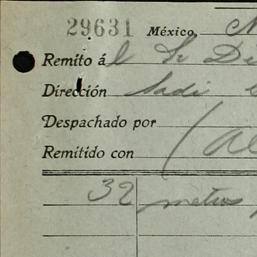 29631 México,
Remito ál Sr De
Dirección
Despachado por
Remitido con
32 metros